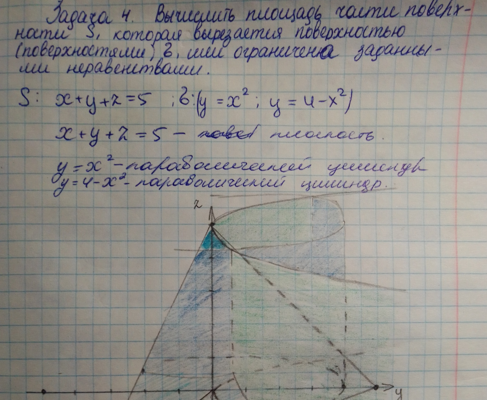 Задача 4. Вычислить площадь части поверх-
ности S, которая вырезается поверхностью
(поверхностями) б, или ограничена заданны-
ми неравенствами.
S: x+y+z=5 ; б:(y=x²; y=4-x²)
x+y+z=5 - плоскость.
y=x²-параболический цилиндр
y=4-x²-параболический цилиндр.
z
y